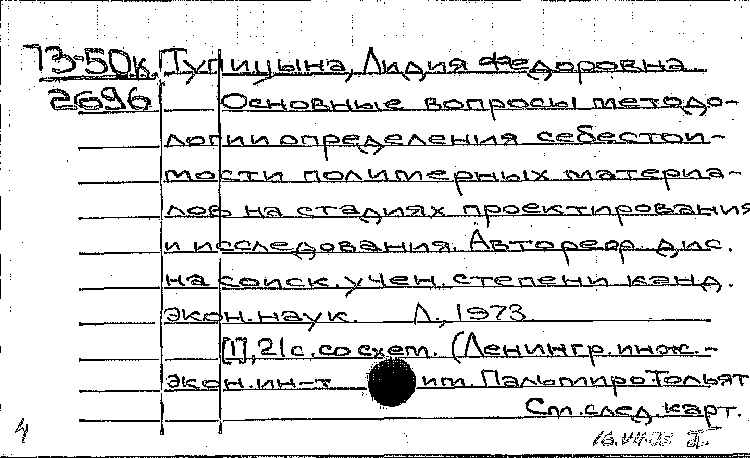 73-50к Тупицына, Лидия Федоровна.
2696 Основные вопросы методо-
логии определения себестои-
мости полимерных материа-
лов на стадиях проектирования
и исследования. Автореф. дис.
на соиск. учен. степени канд.
экон. наук. Л., 1973.
[1], 21 с. со схем. (Ленингр. инж.-
экон. ин-т им. Пальмиро Тольят
См. след. карт.
4